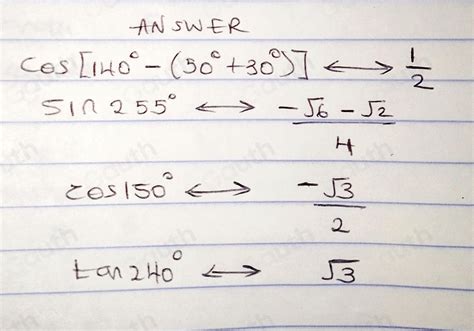 ANSWER
cos[140°-(50°+30°)] ⟷ 1/2
sin 255° ⟷ -√6-√2/4
cos150° ⟷ -√3/2
tan240° ⟷ √3